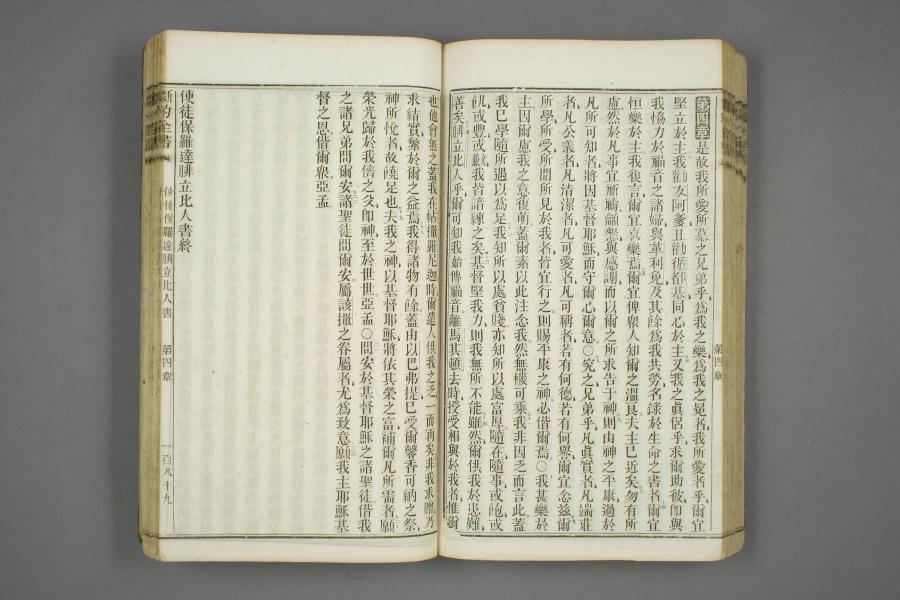 第四章
第四章是故我所愛所慕之兄弟乎爲我之樂爲我之冕者我所愛者乎爾宜
堅立於主我勸友阿爹且勸循都基同心於主又我之眞侶乎求爾助彼卽與
我恊力於福音之諸婦與革利免及其餘爲我共勞名錄於生命之書者爾宜
恒樂於主我復言爾宜喜樂焉爾宜俾衆人知爾之溫良夫主已近矣勿有所
慮然於凡事宜祈禱籲懇與感謝而以爾之所求告于神則由神之平康過於
凡所可知者將因基督耶穌而守爾心爾意〇究之兄弟乎凡眞實者凡端莊
者凡公義者凡清潔者凡可愛者凡可稱者若有何德若有何譽爾宜念茲爾
所學所受所聞所見於我者皆宜行之則賜平康之神必偕爾焉〇我甚樂於
主因爾慮我之意復萌蓋爾素以此注念我然無機可乘我非因乏而言此蓋
我已學隨所遇以爲足我知所以處貧賤亦知所以處富厚隨在隨事或飽或
飢或豐或歉我皆諳練之矣基督堅我力則我無所不能雖然爾供我於患難
善矣腓立比人乎爾可知我始傳福音離馬其頓去時授受相與於我者惟爾
也他會無之蓋我在帖撒羅尼迦時爾遣人供我之乏一而再矣非我求贈乃
求結實繁於爾之益焉我得諸物有餘蓋由以巴弗提已受爾馨香可納之祭
神所悅者故饒足也夫我之神以基督耶穌將依其榮之富補爾凡所需者願
榮光歸於我儕之父卽神至於世世亞孟〇問安於基督耶穌之諸聖徒偕我
之諸兄弟問爾安諸聖徒問爾安屬該撒之眷屬者尤爲致意願我主耶穌基
督之恩偕爾衆亞孟
使徒保羅達腓立比人書終
新約全書 使徒保羅達腓立比人書 第四章 一百八十九